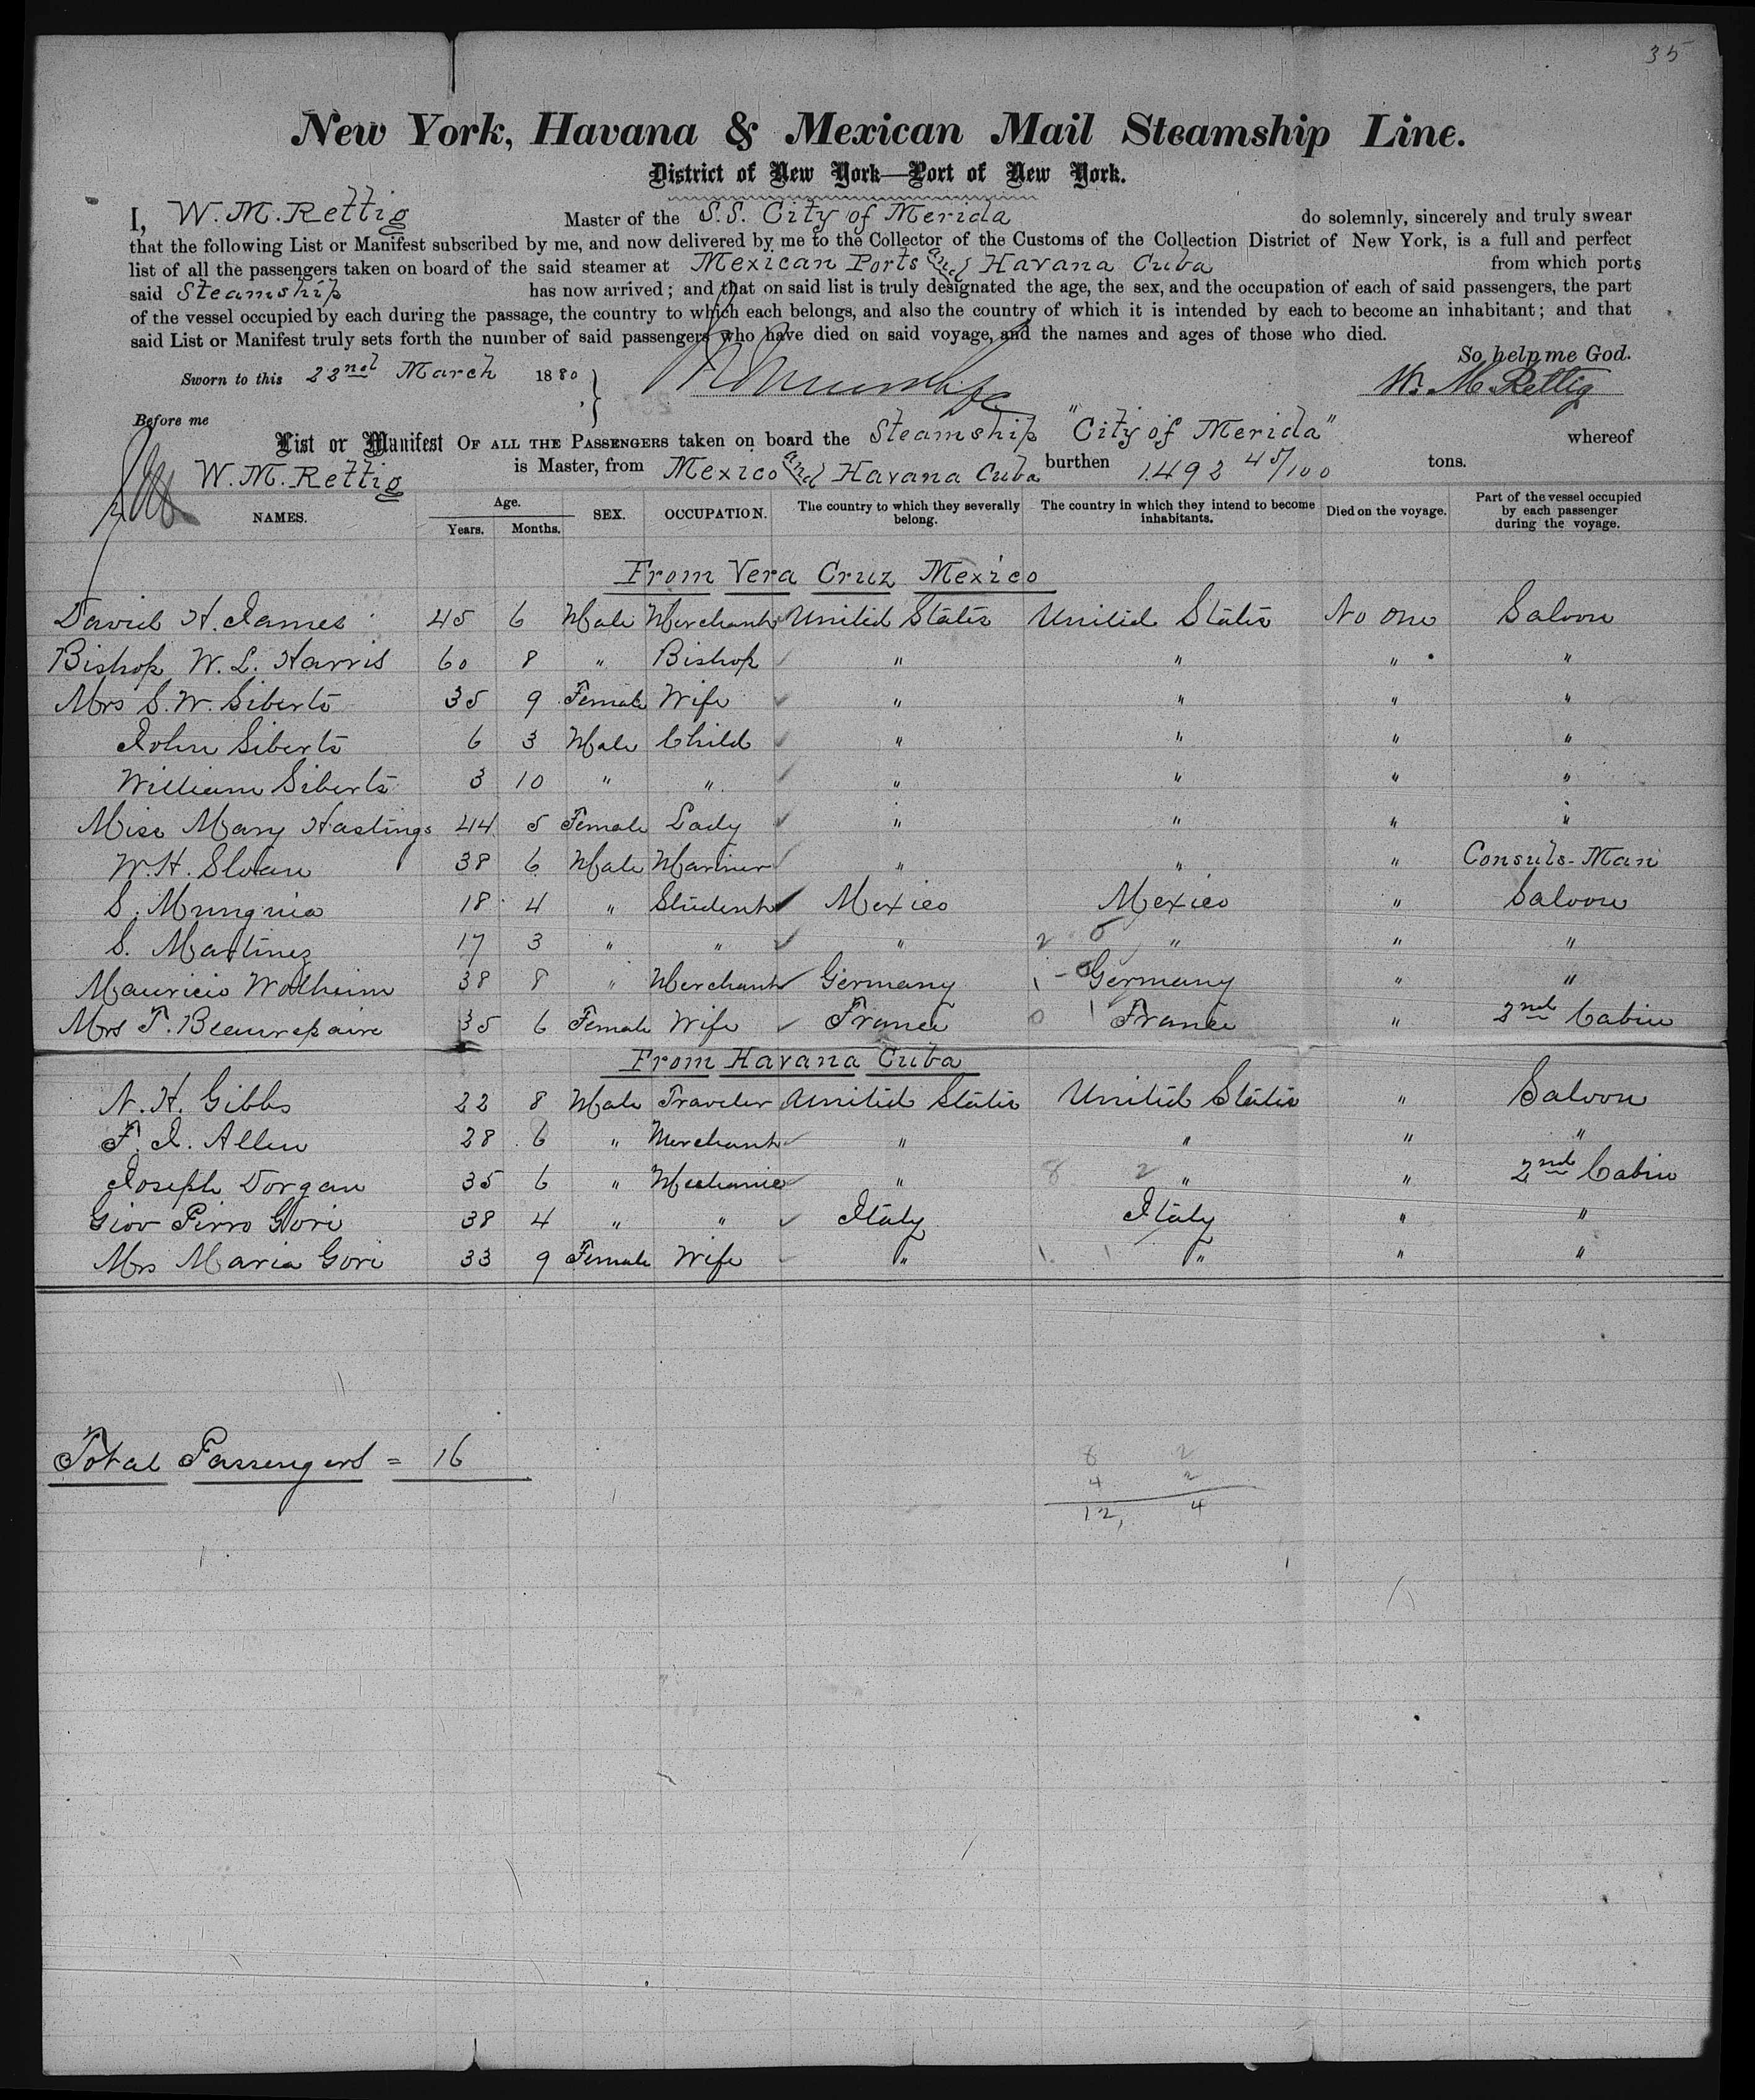 35
New York, Havana & Mexican Mail Steamship Line.
District of New York—Port of New York.
I, W. M. Rettig Master of the S.S. City of Merida do solemnly, sincerely and truly swear
that the following List or Manifest subscribed by me, and now delivered by me to the Collector of the Customs of the Collection District of New York, is a full and perfect
list of all the passengers taken on board of the said steamer at Mexican Ports and Havana Cuba from which ports
said Steamship has now arrived; and that on said list is truly designated the age, the sex, and the occupation of each of said passengers, the part
of the vessel occupied by each during the passage, the country to which each belongs, and also the country of which it is intended by each to become an inhabitant; and that
said List or Manifest truly sets forth the number of said passengers who have died on said voyage, and the names and ages of those who died.
So help me God.
Sworn to this 22nd March 1880 W. M. Rettig
Before me
List or Manifest OF ALL THE PASSENGERS taken on board the Steamship "City of Merida" whereof
W. M. Rettig is Master, from Mexico and Havana Cuba burthen 1492 45/100 tons.
NAMES. Age. Years. Months. SEX. OCCUPATION. The country to which they severally belong. The country in which they intend to become inhabitants. Died on the voyage. Part of the vessel occupied by each passenger during the voyage.
From Vera Cruz Mexico
David H. James 45 6 Male Merchant United States United States No one Saloon
Bishop W. L. Harris 60 8 " Bishop " " " "
Mrs S. W. Siberts 35 9 Female Wife " " " "
John Siberts 6 3 Male Child " " " "
William Siberts 3 10 " " " " " "
Miss Mary Hastings 44 5 Female Lady " " " "
W. H. Sloan 38 6 Male Mariner " " " Consuls-Man
S. Munguia 18 4 " Student Mexico Mexico " Saloon
S. Martinez 17 3 " " " 2 0 " " "
Mauricio Wolheim 38 8 " Merchant Germany 1 - 0 Germany " "
Mrs F. Beaurepaire 35 6 Female Wife France 0 1 France " 2nd Cabin
From Havana Cuba
N. H. Gibbs 22 8 Male Traveler United States United States " Saloon
F. I. Allen 28 6 " Merchant " " " "
Joseph Dorgan 35 6 " Mechanic " 8 2 " " 2nd Cabin
Giov Pirro Gori 38 4 " " Italy Italy " "
Mrs Maria Gori 33 9 Female Wife " 1 1 " " "
Total Passengers = 16
8 2
4 2
12, 4